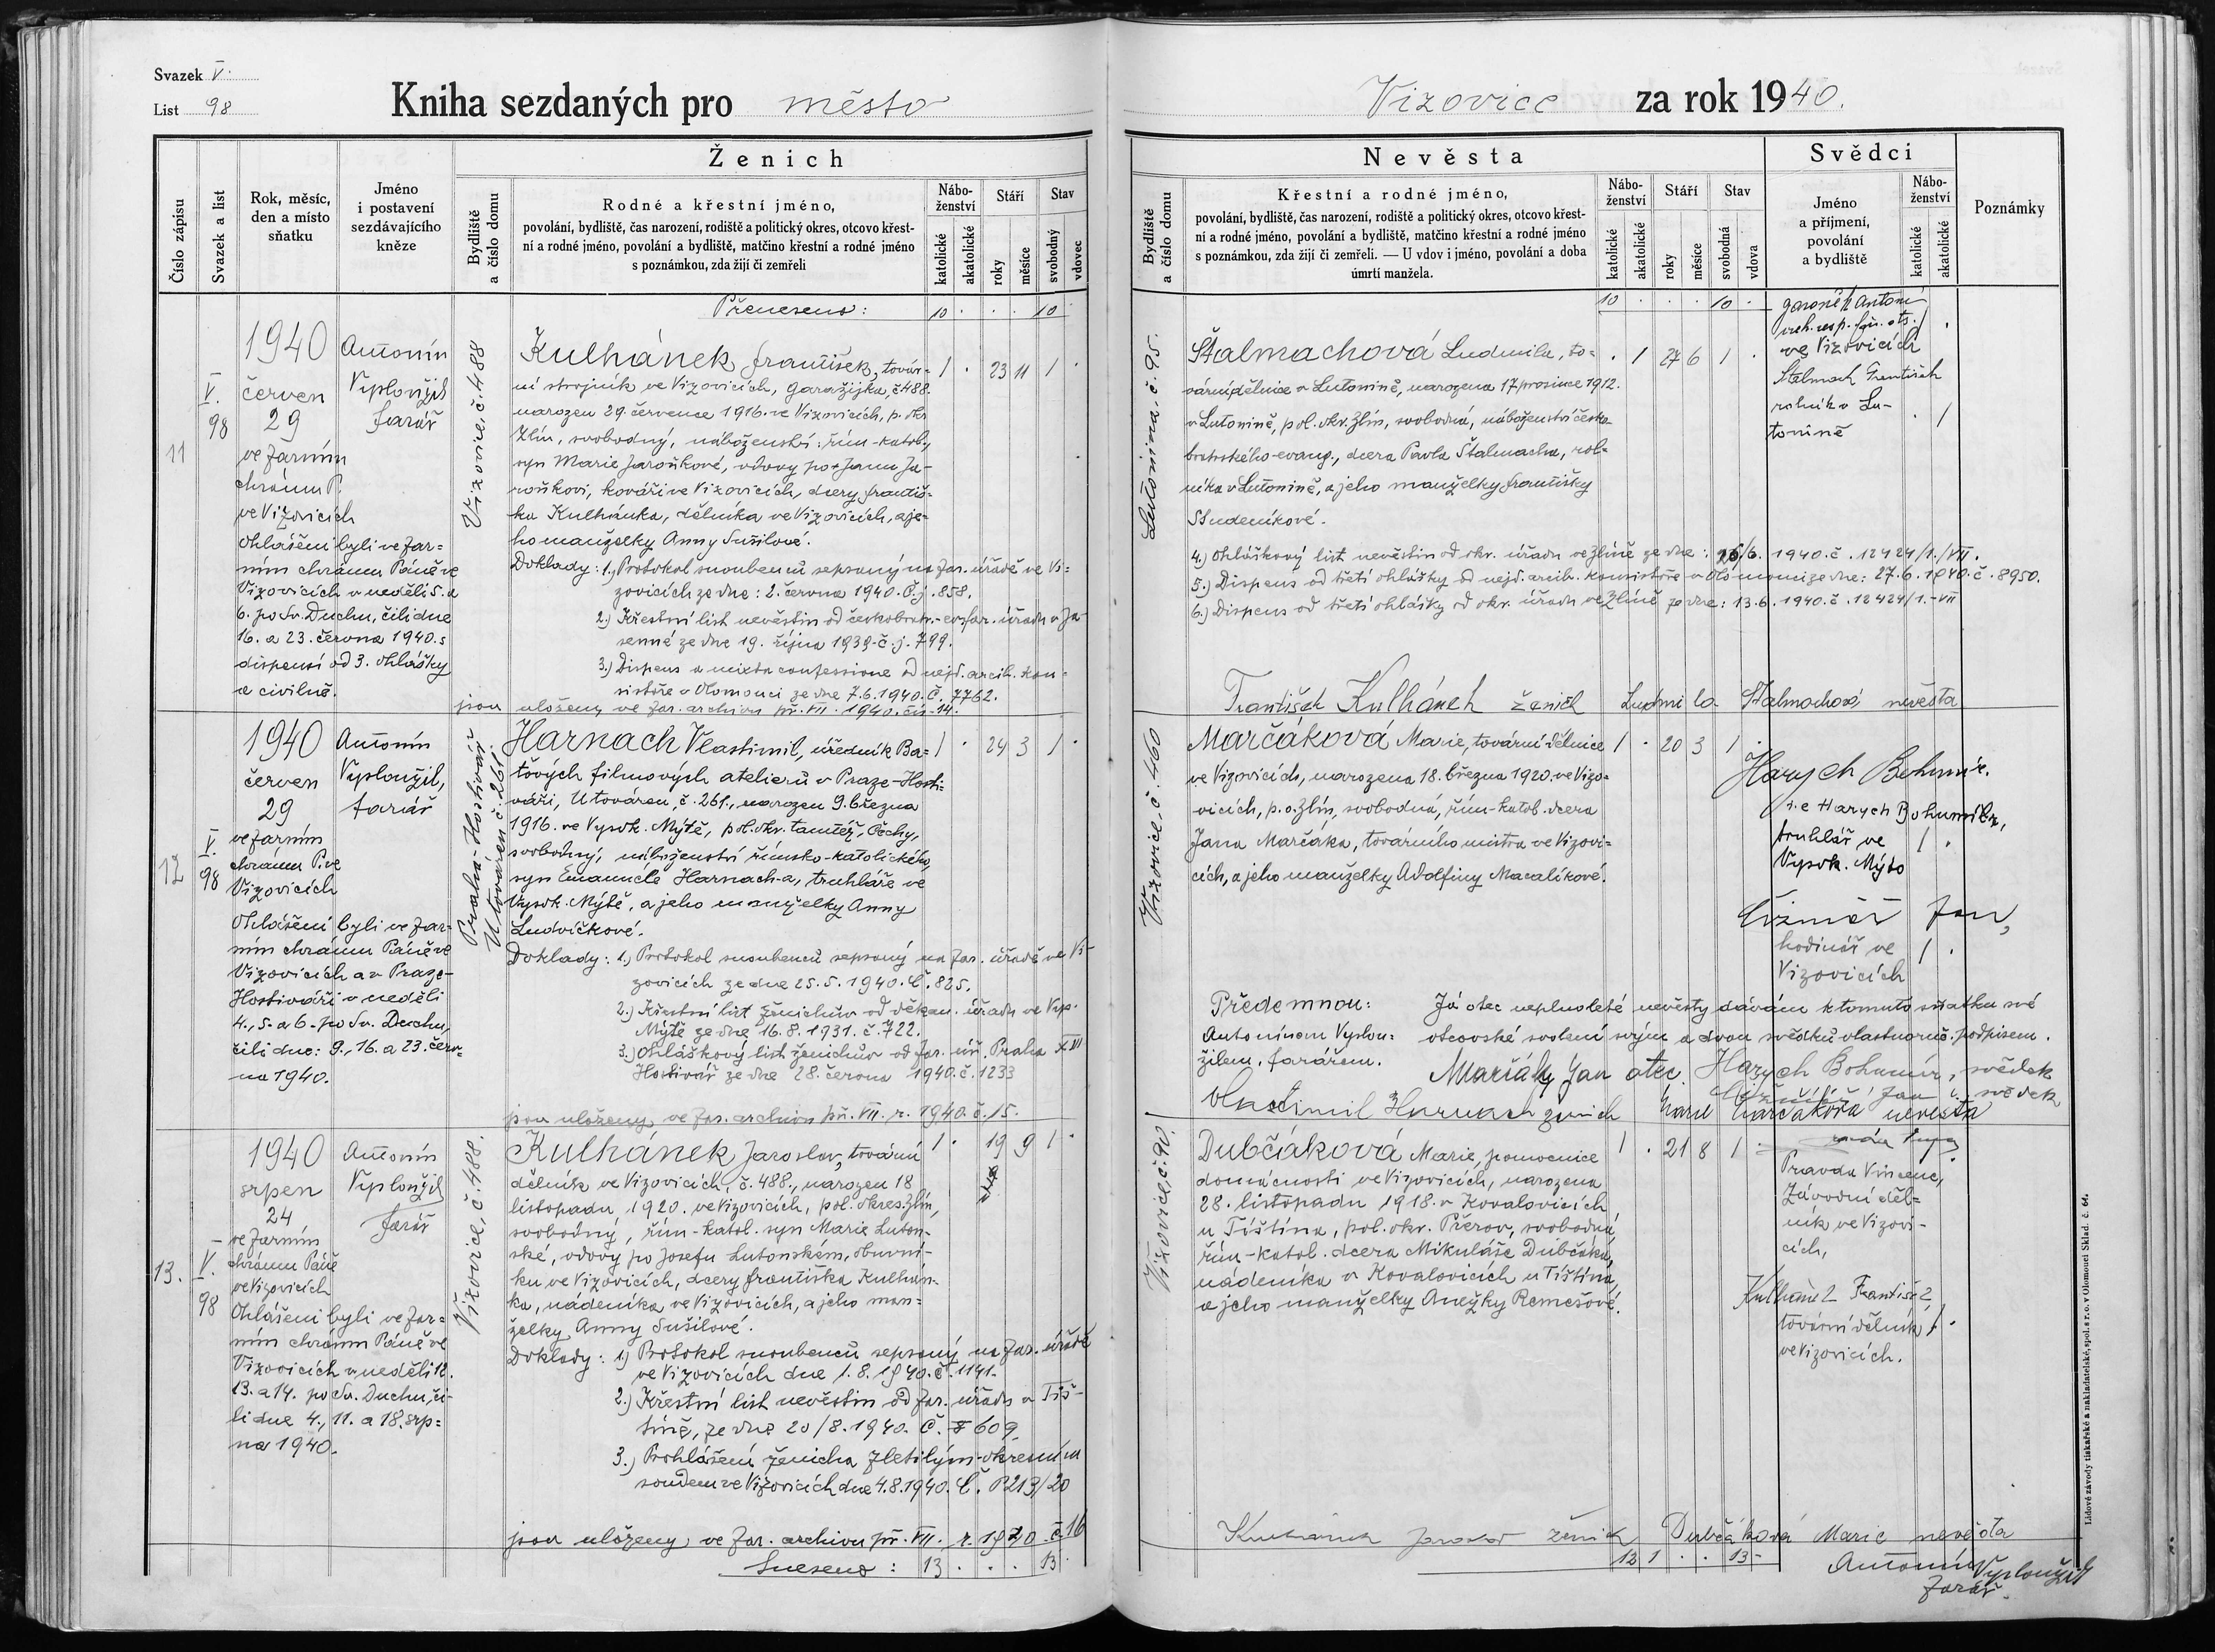 Svazek V.
List 98
Kniha sezdaných pro město
Číslo zápisu
Svazek a list
Rok, měsíc,
den a místo
sňatku
Jméno
i postavení
sezdávajícího
kněze
Ženich
Bydliště
a číslo domu
Rodné a křestní jméno,
povolání, bydliště, čas narození, rodiště a politický okres, otcovo křest-
ní a rodné jméno, povolání a bydliště, matčino křestní a rodné jméno
s poznámkou, zda žijí či zemřeli
Nábo-
ženství
katolické
akatolické
Stáří
roky
měsíce
Stav
svobodný
vdovec
Přeneseno: 10 . . . 10 .
11
V.
98
1940
červen
29
ve farním
chrámu P.
ve Vizovicích
Ohlášeni byli ve far=
ním chrámu Páně ve
Vizovicích v neděli 5. a
6. po Sv. Duchu, čili dne
16. a 23. června 1940. s
dispensí od 3. ohlášky
a civilně.
Antonín
Vyploužil
farář
Vizovice, č. 488
Kulhánek František, továr- 1 . 23 11 1 .
ní strojník ve Vizovicích, Garažijka, č 488.
narozen 29. července 1916. ve Vizovicích, p. okr
Zlín, svobodný, náboženství: řím-katol.,
syn Marie Jaroňkové, vdovy po + Janu Ja-
roňkovi, kováři ve Vizovicích, dcery Františ-
ka Kulhánka, dělníka ve Vizovicích, a je-
ho manželky Anny Sušilové.
Doklady: 1.) Protokol snoubenců sepsaný na far. úřadě ve Vi-
zovicích ze dne: 2. června 1940. Č.j. 858.
2.) Křestní list nevěstin od českobratr.-ev. far. úřadu v Ja-
senné ze dne 19. října 1939. č. j. 799.
3.) Dispens a mixta confessione od nejd. arcib. kon-
sistoře v Olomouci ze dne 7.6.1940. Č. 7762.
jsou uloženy ve far. archivu př. VII. 1940. čís. 14.
12
V.
98
1940
červen
29
ve farním
chrámu P. ve
Vizovicích
Ohlášeni byli ve far-
ním chrámu Páně ve
Vizovicích a v Praze-
Hostivaři v neděli
4., 5. a 6. po Sv. Duchu,
čili dne: 9., 16. a 23. červ-
na 1940.
Antonín
Vyploužil,
farář
Praha-Hostivař
U továren č. 261.
Harnach Vlastimil, úředník Ba= 1 . 24 3 1 .
ťových filmových atelierů v Praze-Hosti-
vaři, U továren, č. 261., narozen 9. března
1916. ve Vysok. Mýtě, pol. okr. tamtéž, Čechy,
svobodný, náboženství římsko-katolického,
syn Emanuele Harnach-a, truhláře ve
Vysok. Mýtě, a jeho manželky Anny
Ludvíčkové.
Doklady: 1.) Protokol snoubenců sepsaný na far. úřadě ve Vi-
zovicích ze dne 25.5.1940. Č. 825.
2.) Křestní list ženichův od děkan. úřadu ve Vys.
Mýtě ze dne 16.8.1931. č. 722.
3.) Ohláškový list ženichův od far. úř. Praha XIII
Hostivař ze dne 28. června 1940. č. 1233
jsou uloženy ve far. archivu př. VII. r. 1940. č. 15.
13.
V.
98
1940
srpen
24
ve farním
chrámu Páně
ve Vizovicích
Ohlášeni byli ve far=
ním chrámu Páně ve
Vizovicích v neděli 12.
13. a 14. po Sv. Duchu, či-
li dne 4., 11. a 18. srp=
na 1940.
Antonín
Vyploužil
farář
Vizovice, č. 488.
Kulhánek Jaroslav, tovární 1 . 19 9 1 .
dělník ve Vizovicích, č. 488., narozen 18
listopadu 1920. ve Vizovicích, pol. okres Zlín,
svobodný, řím-katol. syn Marie Luton-
ské, vdovy po Josefu Lutonském, obuvní-
ku ve Vizovicích, dcery Františka Kulhán-
ka, nádeníka ve Vizovicích, a jeho man=
želky Anny Sušilové.
Doklady: 1) Protokol snoubenců sepsaný na far. úřadě
ve Vizovicích dne 1.8.1940. č. 1141.
2.) Křestní list nevěstin od far. úřadu v Tiš-
tíně, ze dne 20/8. 1940. Č. 609.
3.) Prohlášení ženicha zletilým-okresním
soudem ve Vizovicích dne 4.8.1940. Č. P213/20
jsou uloženy ve far. archivu př. VII. r. 1940. č. 16
Sneseno: 13 . . . 13 .
Vizovice za rok 1940.
Nevěsta
Bydliště
a číslo domu
Křestní a rodné jméno,
povolání, bydliště, čas narození, rodiště a politický okres, otcovo křest-
ní a rodné jméno, povolání a bydliště, matčino křestní a rodné jméno
s poznámkou, zda žijí či zemřeli. — U vdov i jméno, povolání a doba
úmrtí manžela.
Nábo-
ženství
katolické
akatolické
Stáří
roky
měsíce
Stav
svobodná
vdova
Svědci
Jméno
a příjmení,
povolání
a bydliště
Nábo-
ženství
katolické
akatolické
Poznámky
10 . . . 10 .
Lutonina č. 95.
Štalmachová Ludmila, to= . 1 27 6 1 .
vární dělnice v Lutonině, narozena 17 prosince 1912.
v Lutonině, pol. okr. Zlín, svobodná, náboženství česko
bratrského-evang., dcera Pavla Štalmacha, rol=
níka v Lutonině, a jeho manželky Františky
Studeníkové.
Antonín
ve Vizovicích
Štalmach František
rolník v Lu-
tonině
4.) Ohláškový list nevěstin od okr. úřadu ve Zlíně ze dne: 26/6. 1940. č. 12424/1./VII.
5.) Dispens od třetí ohlášky od nejd. arcib. konsistoře v Olomouci ze dne: 27.6.1940. č. 8950.
6.) Dispens od třetí ohlášky od okr. úřadu ve Zlíně ze dne: 13.6.1940. č. 12424/1.-VII
František Kulhánek ženich Ludmila Štalmachová nevěsta
Vizovice, č. 460
Marčáková Marie, tovární dělnice 1 . 20 3 1 .
ve Vizovicích, narozena 18. března 1920. ve Vizo=
vicích, p. o. Zlín, svobodná, řím-katol. dcera
Jana Marčáka, továrního mistra ve Vizovi=
cích, a jeho manželky Adolfiny Macalíkové.
Harych Bohumír.
i.e Harych Bohumír,
truhlář ve 1 .
Vysok. Mýto
Čižmář Jan,
hodinář ve 1 .
Vizovicích
Přede mnou: Já otec neplnoleté nevěsty dávám k tomuto sňatku své
Antonínem Vyplou= otcovské svolení svým a dvou svědků vlastnoruč. podpisem.
žilem, farářem. Marčák Jan otec. Harych Bohumír, svědek
Čižmář Jan svědek
Vlastimil Harnach ženich Marie Marčáková nevěsta
Vizovice, č. 90.
Dubčáková Marie, pomocnice 1 . 21 8 1 .
domácnosti ve Vizovicích, narozena
28. listopadu 1918. v Kovalovicích
u Tištína, pol. okr. Přerov, svobodná,
řím-katol. dcera Mikuláše Dubčáka,
nádeníka v Kovalovicích u Tištína,
a jeho manželky Anežky Remešové.
Pravda Vincenc,
závodní děl=
ník ve Vizovi-
cích,
Kulhánek František,
tovární dělník 1 .
ve Vizovicích.
Kulhánek Jaroslav ženich Dubčáková Marie nevěsta
12 1 . . 13 -
Antonín Vyploužil
farář.
Lidové závody tiskařské a nakladatelské, spol. s r. o. v Olomouci Sklad. č. 64.